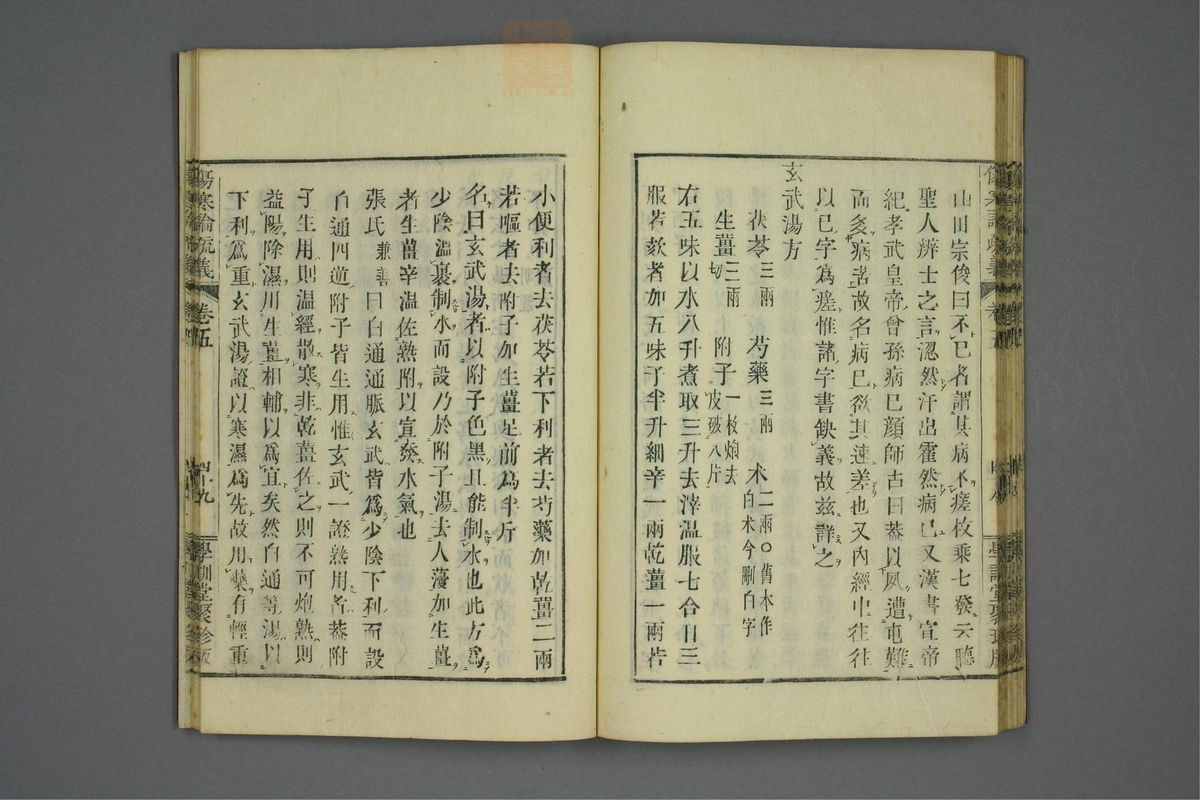 山田宗俊曰不已者謂其病不瘥枚乘七發云聽
聖人辨士之言涊然汗出霍然病已又漢書宣帝
紀孝武皇帝曾孫病已顔師古曰蓋以夙遭屯難
而多病苦故名病已欲其速差也又內經中往往
以已字爲瘥惟諸字書缺義故玆詳之
玄武湯方
茯苓三兩 芍藥三兩 朮二兩○舊本作白朮今刪白字
生薑三兩切 附子一枚炮去皮破八片
右五味以水八升煮取三升去滓溫服七合日三
服若欬者加五味子半升細辛一兩乾薑一兩若
小便利者去茯苓若下利者去芍藥加乾薑二兩
若嘔者去附子加生薑足前爲半斤
名曰玄武湯者以附子色黑且能制水也此方爲
少陰溫裏制水而設乃於附子湯去人蓡加生薑
者生薑辛溫佐熟附以宣發水氣也
張氏兼善曰白通通脈玄武皆爲少陰下利而設
白通四逆附子皆生用惟玄武一證熟用者蓋附
子生用則溫經散寒非乾薑佐之則不可炮熟則
益陽除濕用生薑相輔以爲宜矣然白通等湯以
下利爲重玄武湯證以寒濕爲先故用藥有輕重
傷寒論疏義 卷五 四十九 學訓堂聚珍版